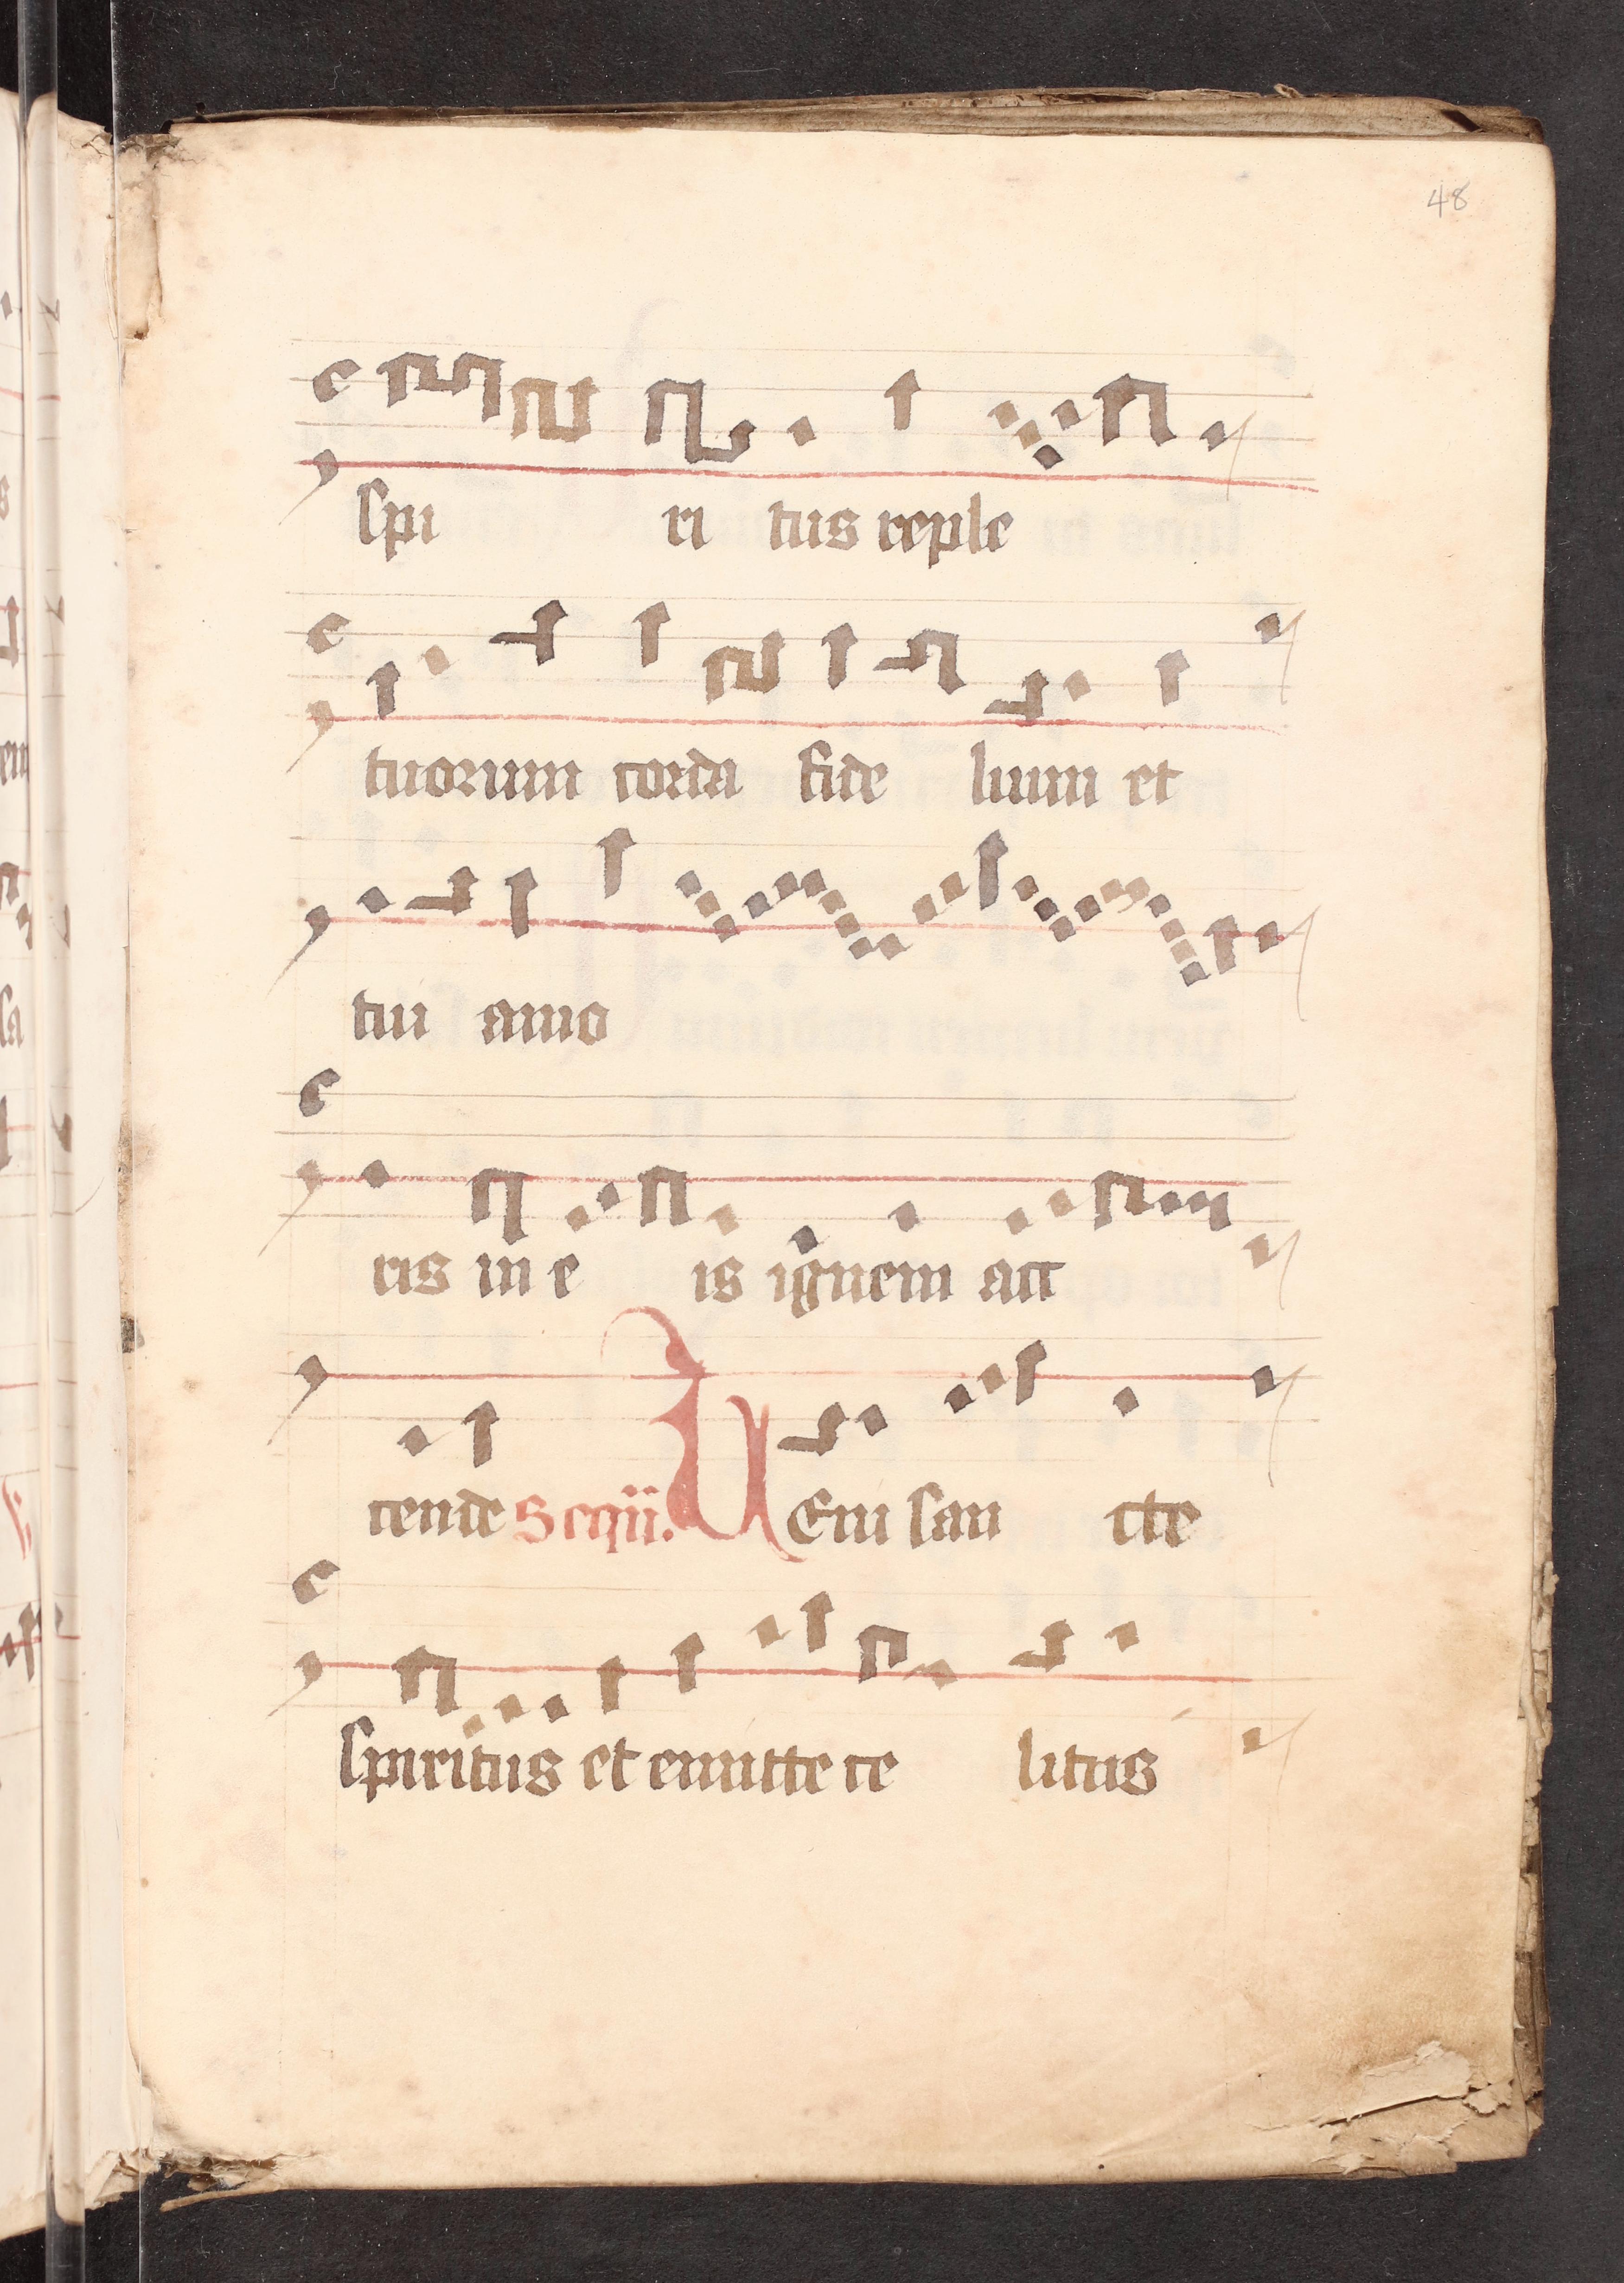 48
spi ri tus reple
tuorum corda fide lium et
tui amo
ris in e is ignem acc
cende Sequ. Ueni san cte
spiritus et emitte ce litus